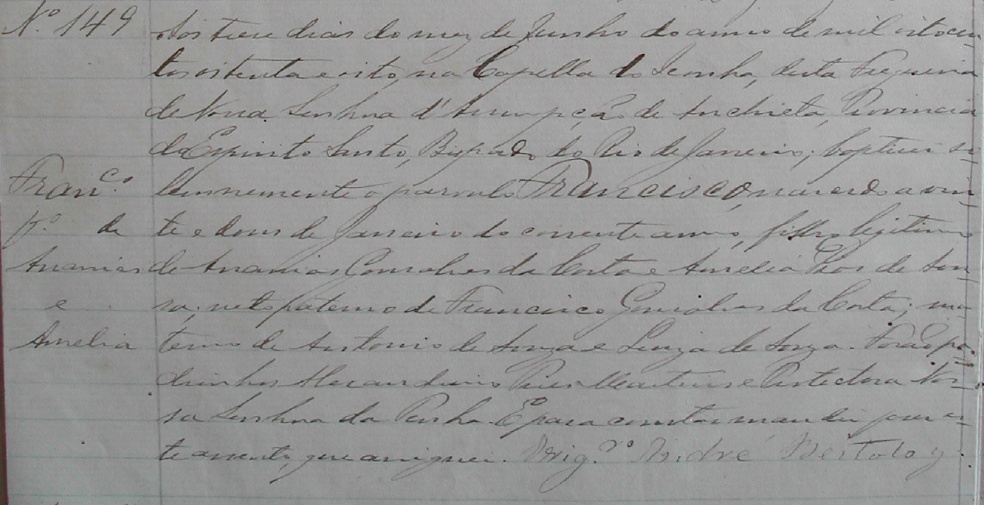 Nº 149
Aos treze dias do mez de Junho do anno de mil oitocen-
tos oitenta e oito, na Capella do Iconha, desta Freguesia
de Nossa Senhora d'Assumpção de Anchieta, Provincia
do Espirito Santo, Bispado do Rio de Janeiro; baptizei so-
lemnemente o parvulo Francisco, nascido a vin-
te e dous de Janeiro do corrente anno, filho legitimo
de Ananias Gonsalves da Costa e Amelia de Sou-
za; neto paterno de Francisco Gonsalves da Costa; ma-
terno de Antonio de Souza e Luiza de Souza. Forão pa-
drinhos Alexandrino Pires Martins e Protectora Nos-
sa Senhora da Penha. E para constar mandei fazer es-
te assento, que assignei. Vigº André
Franco.
fº de
Ananias
e
Amelia